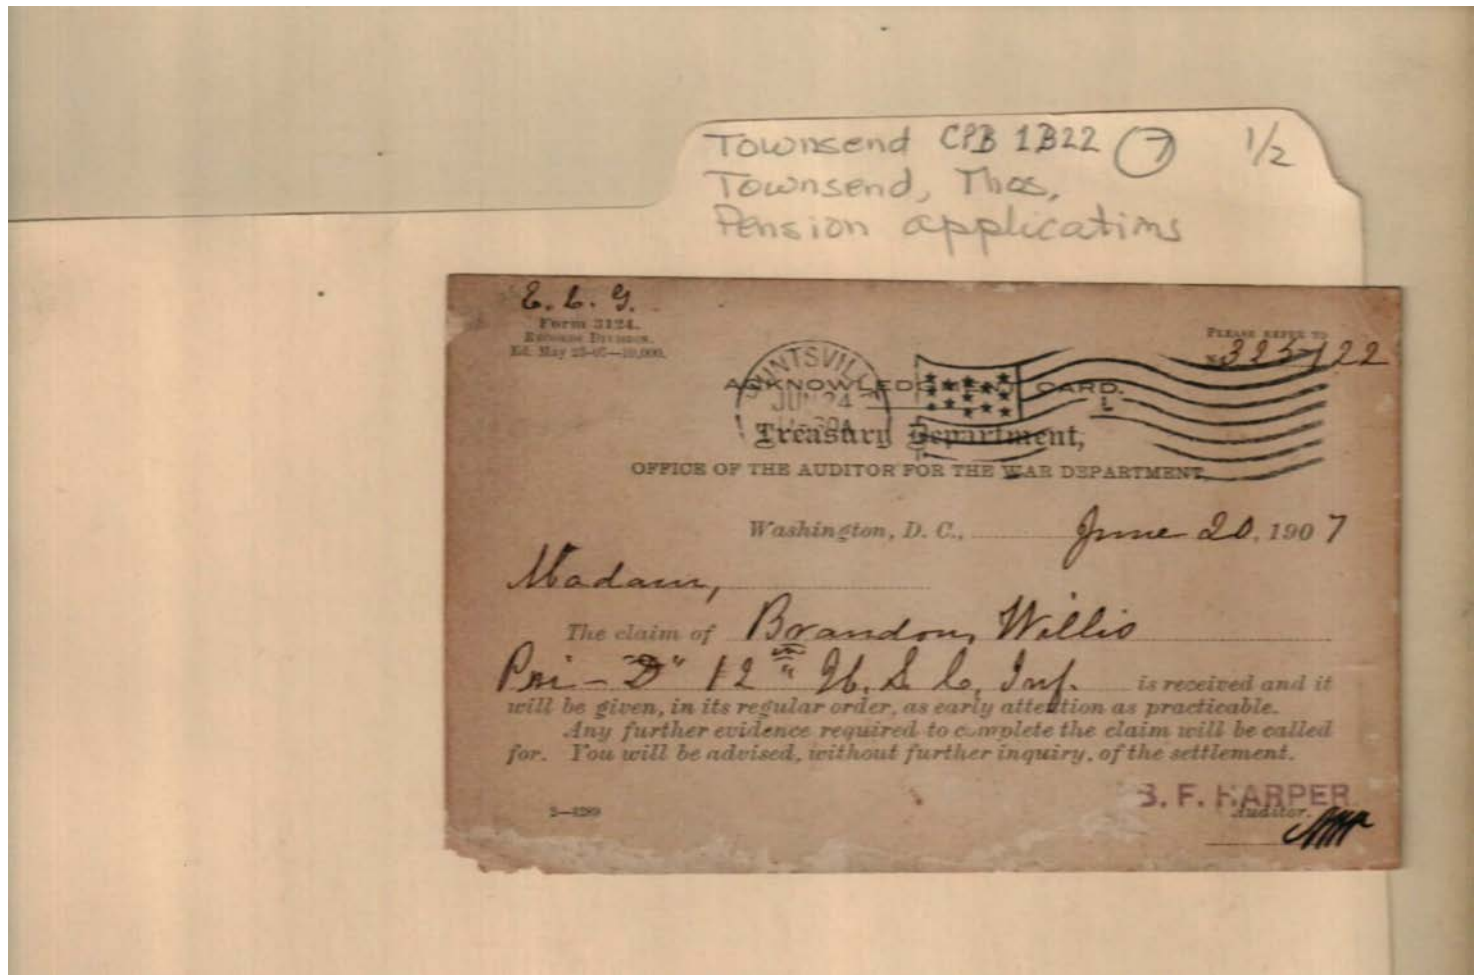 Townsend CPB 1B22 7 1/2
Townsend, Thos,
Pension applications
E. L. G.
Form 3124.
RECORDS DIVISION.
Ed. May 23-07—10,000.
PLEASE REFER TO
No. 325122
HUNTSVILLE
JUN 24
ACKNOWLEDGMENT CARD.
Treasury Department,
OFFICE OF THE AUDITOR FOR THE WAR DEPARTMENT
Washington, D. C., June 20, 1907
Madam,
The claim of Brandon, Willis
Pri - "D" 12" U. S. C. Inf. is received and it
will be given, in its regular order, as early attention as practicable.
Any further evidence required to complete the claim will be called
for. You will be advised, without further inquiry, of the settlement.
B. F. HARPER
Auditor.